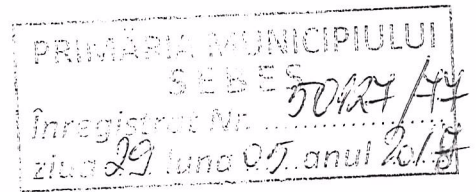 PRIMĂRIA MUNICIPIULUI
SEBEȘ
Înregistrat Nr. 50127/77
ziua 29 luna 05 anul 2018